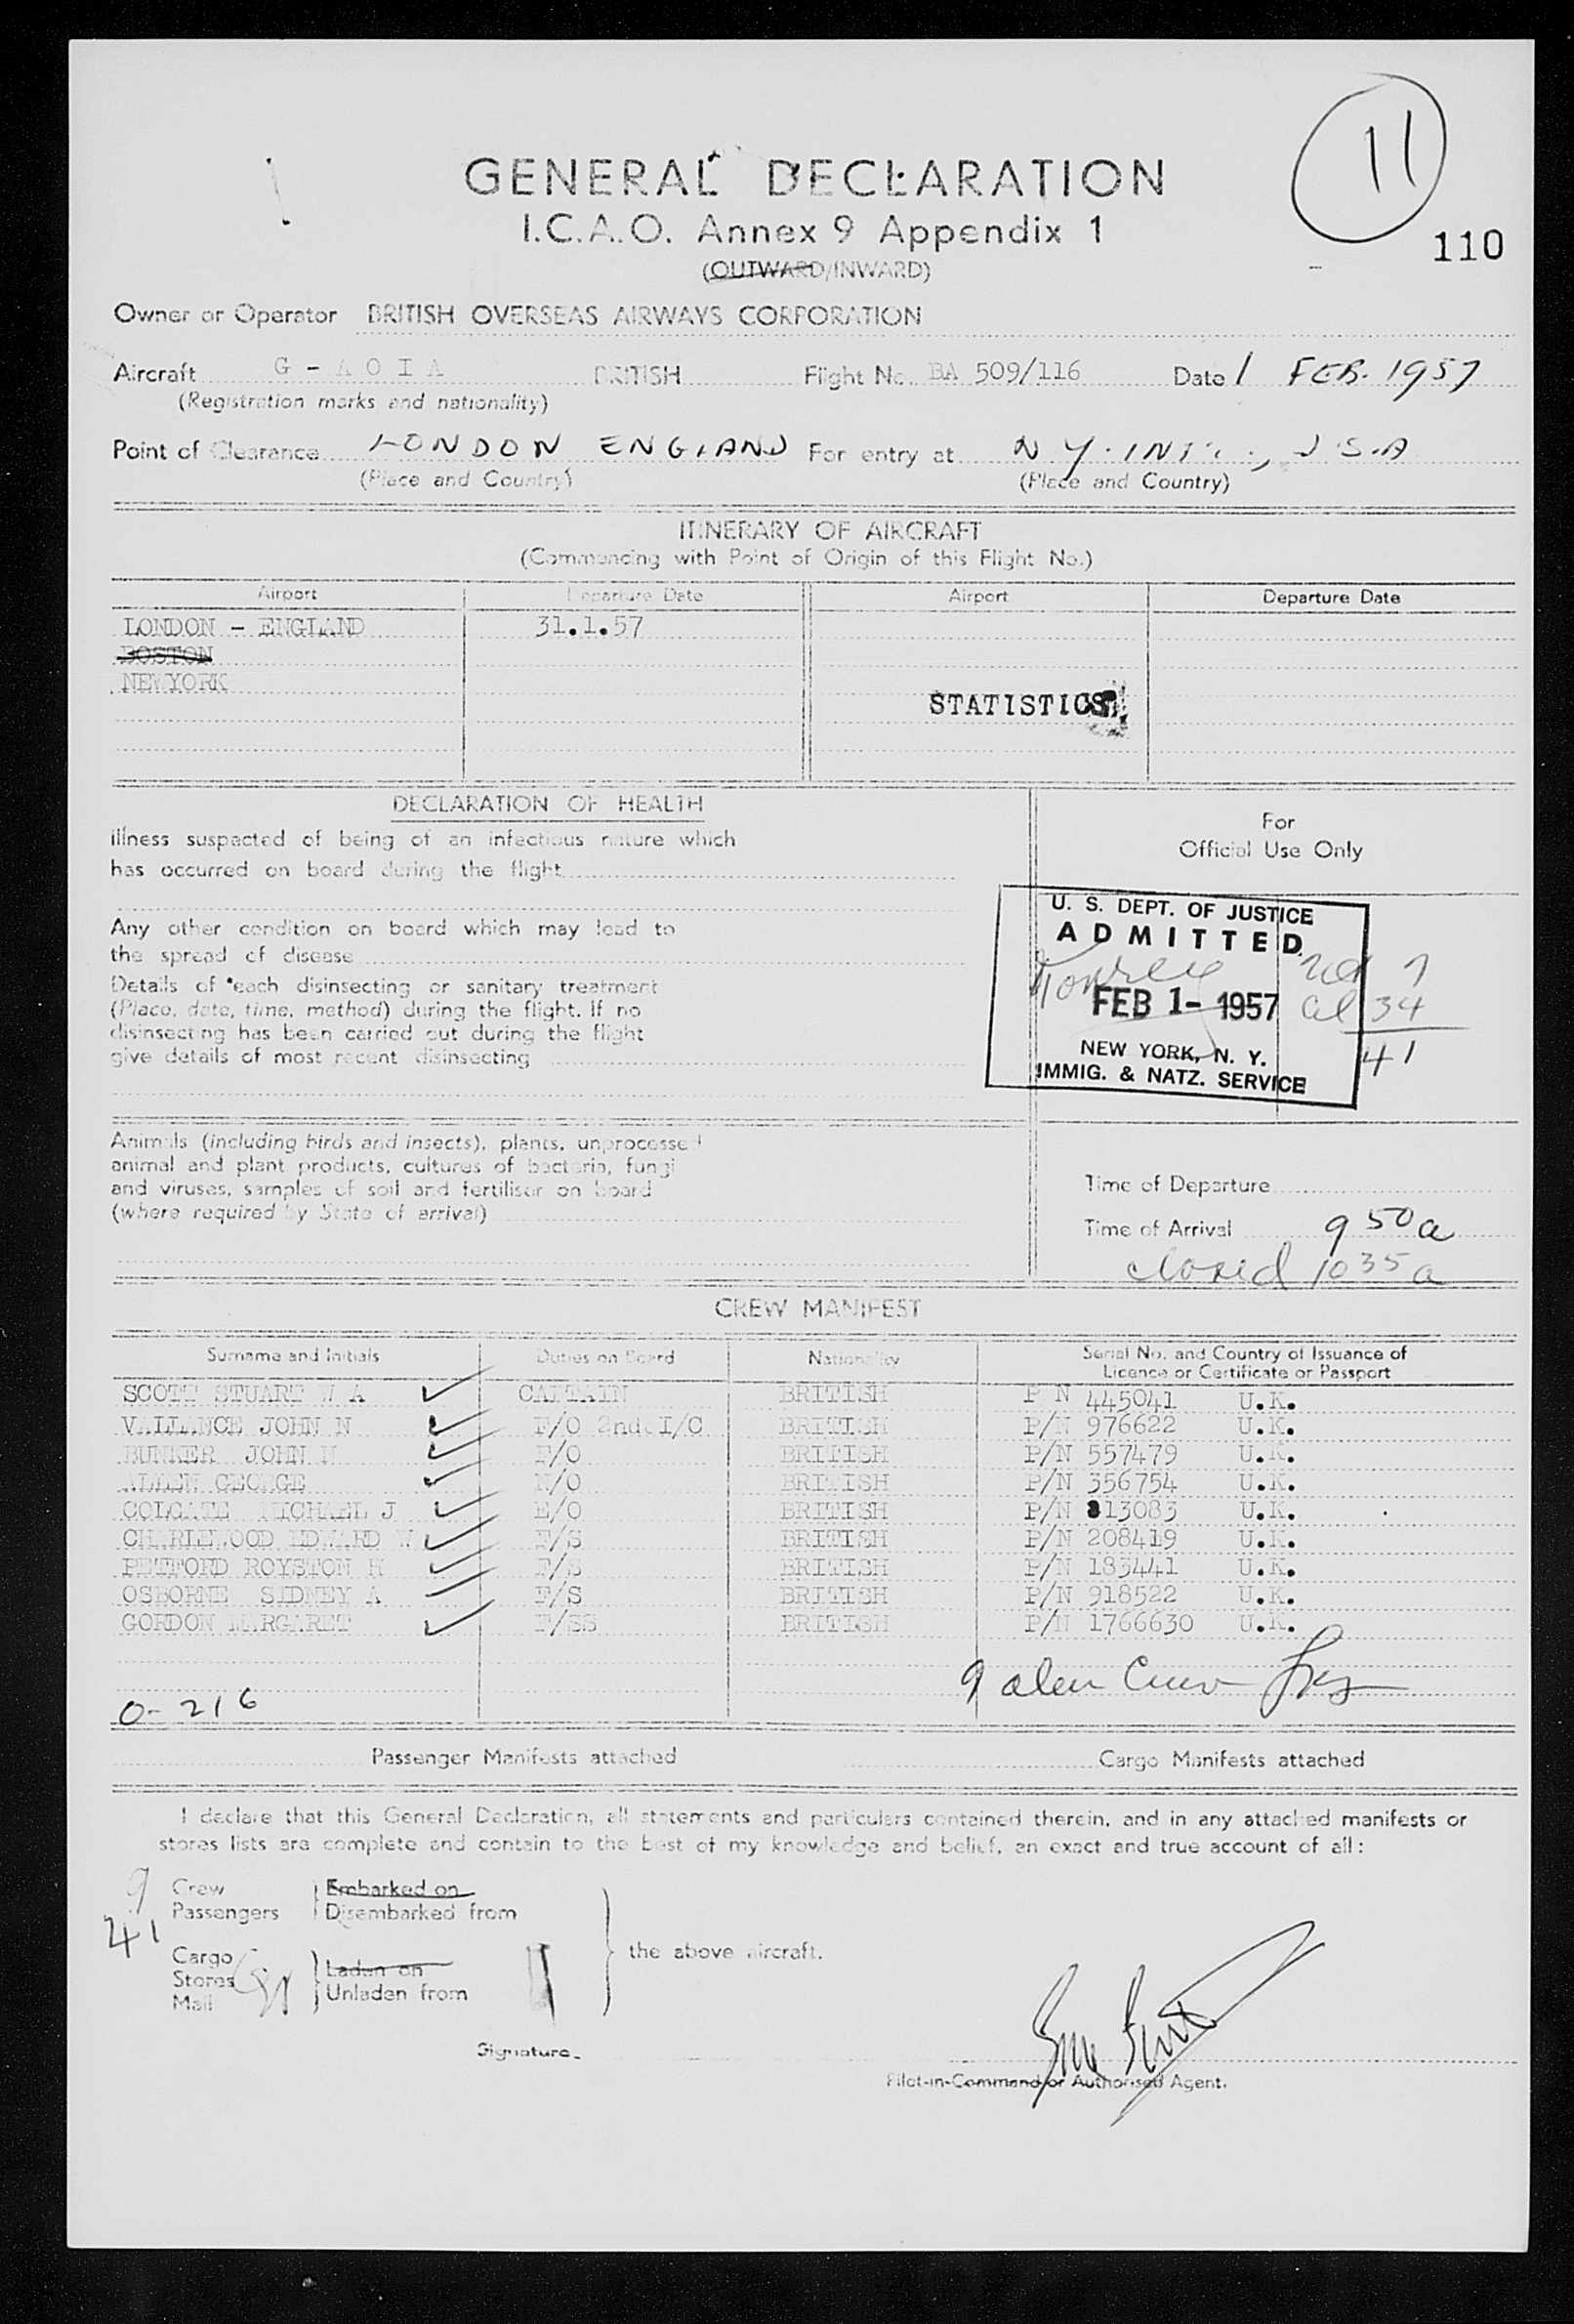 11
110
GENERAL DECLARATION
I.C.A.O. Annex 9 Appendix 1
(OUTWARD/INWARD)
Owner or Operator BRITISH OVERSEAS AIRWAYS CORPORATION
Aircraft G - A O I A BRITISH Flight No. BA 509/116 Date 1 FEB. 1957
(Registration marks and nationality)
Point of Clearance LONDON ENGLAND For entry at N Y. INT'L., U.S.A
(Place and Country) (Place and Country)
ITINERARY OF AIRCRAFT
(Commencing with Point of Origin of this Flight No.)
Airport Departure Date Airport Departure Date
LONDON - ENGLAND 31.1.57
BOSTON
NEW YORK
STATISTICS
DECLARATION OF HEALTH
For
Official Use Only
Illness suspected of being of an infectious nature which
has occurred on board during the flight
Any other condition on board which may lead to
the spread of disease
Details of each disinsecting or sanitary treatment
(Place, date, time, method) during the flight. If no
disinsecting has been carried out during the flight
give details of most recent disinsecting
U. S. DEPT. OF JUSTICE
ADMITTED
7
FEB 1- 1957 al 34
41
NEW YORK, N. Y.
IMMIG. & NATZ. SERVICE
Animals (including birds and insects), plants, unprocessed
animal and plant products, cultures of bacteria, fungi
and viruses, samples of soil and fertiliser on board
(where required by State of arrival)
Time of Departure
Time of Arrival 9 50 a
closed 10 35 a
CREW MANIFEST
Surname and Initials Duties on Board Nationality Serial No. and Country of Issuance of
Licence or Certificate or Passport
SCOTT STUART W A CAPTAIN BRITISH P N 445041 U.K.
VAILLANCE JOHN N F/O 2nd I/C BRITISH P/N 976622 U.K.
BUNKER JOHN F/O BRITISH P/N 557479 U.K.
ALLEN GEORGE N/O BRITISH P/N 356754 U.K.
COLGATE MICHAEL J E/O BRITISH P/N 813083 U.K.
CHARLEWOOD EDWARD W F/S BRITISH P/N 208419 U.K.
PETFORD ROYSTON H F/S BRITISH P/N 183441 U.K.
OSBORNE SIDNEY A F/S BRITISH P/N 918522 U.K.
GORDON MARGARET F/SS BRITISH P/N 1766630 U.K.
9 alien Crew
0-216
Passenger Manifests attached Cargo Manifests attached
I declare that this General Declaration, all statements and particulars contained therein, and in any attached manifests or
stores lists are complete and contain to the best of my knowledge and belief, an exact and true account of all:
9 Crew Embarked on
41 Passengers Disembarked from
the above aircraft.
Cargo
Stores Laden on
Mail Unladen from
Signature
Pilot-in-Command or Authorised Agent.